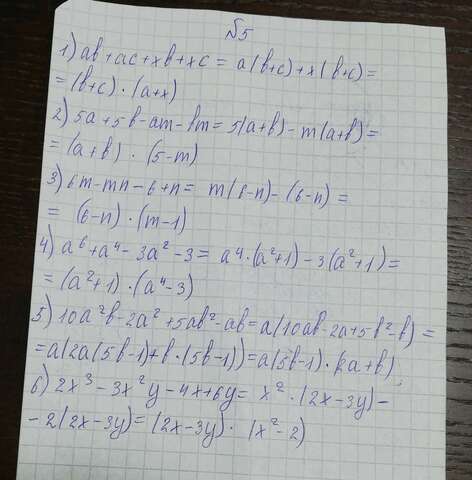 №5
1) ab+ac+xb+xc = a(b+c)+x(b+c)=
=(b+c)·(a+x)
2) 5a+5b-am-bm=5(a+b)-m(a+b)=
=(a+b)·(5-m)
3) 6m-mn-6+n= m(6-n)-(6-n)=
= (6-n)·(m-1)
4) a⁶+a⁴-3a²-3= a⁴·(a²+1)-3(a²+1)=
=(a²+1)·(a⁴-3)
5) 10a²b-2a²+5ab²-ab=a(10ab-2a+5b²-b)=
=a(2a(5b-1)+b·(5b-1))=a(5b-1)·(2a+b),
6) 2x³-3x²y-4x+6y= x²·(2x-3y)-
-2(2x-3y)=(2x-3y)·(x²-2)